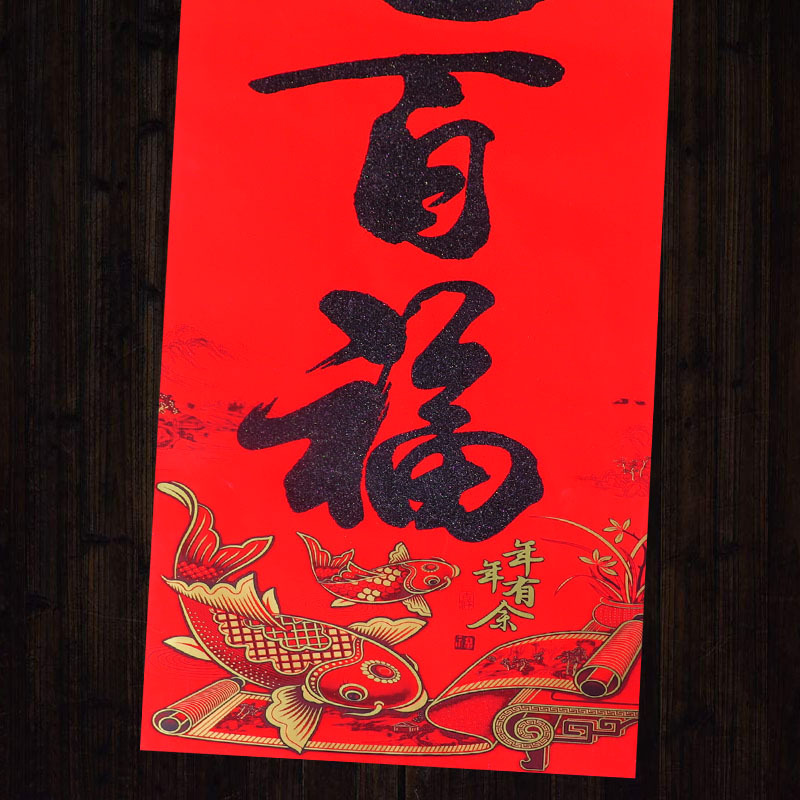 百福
年年有余